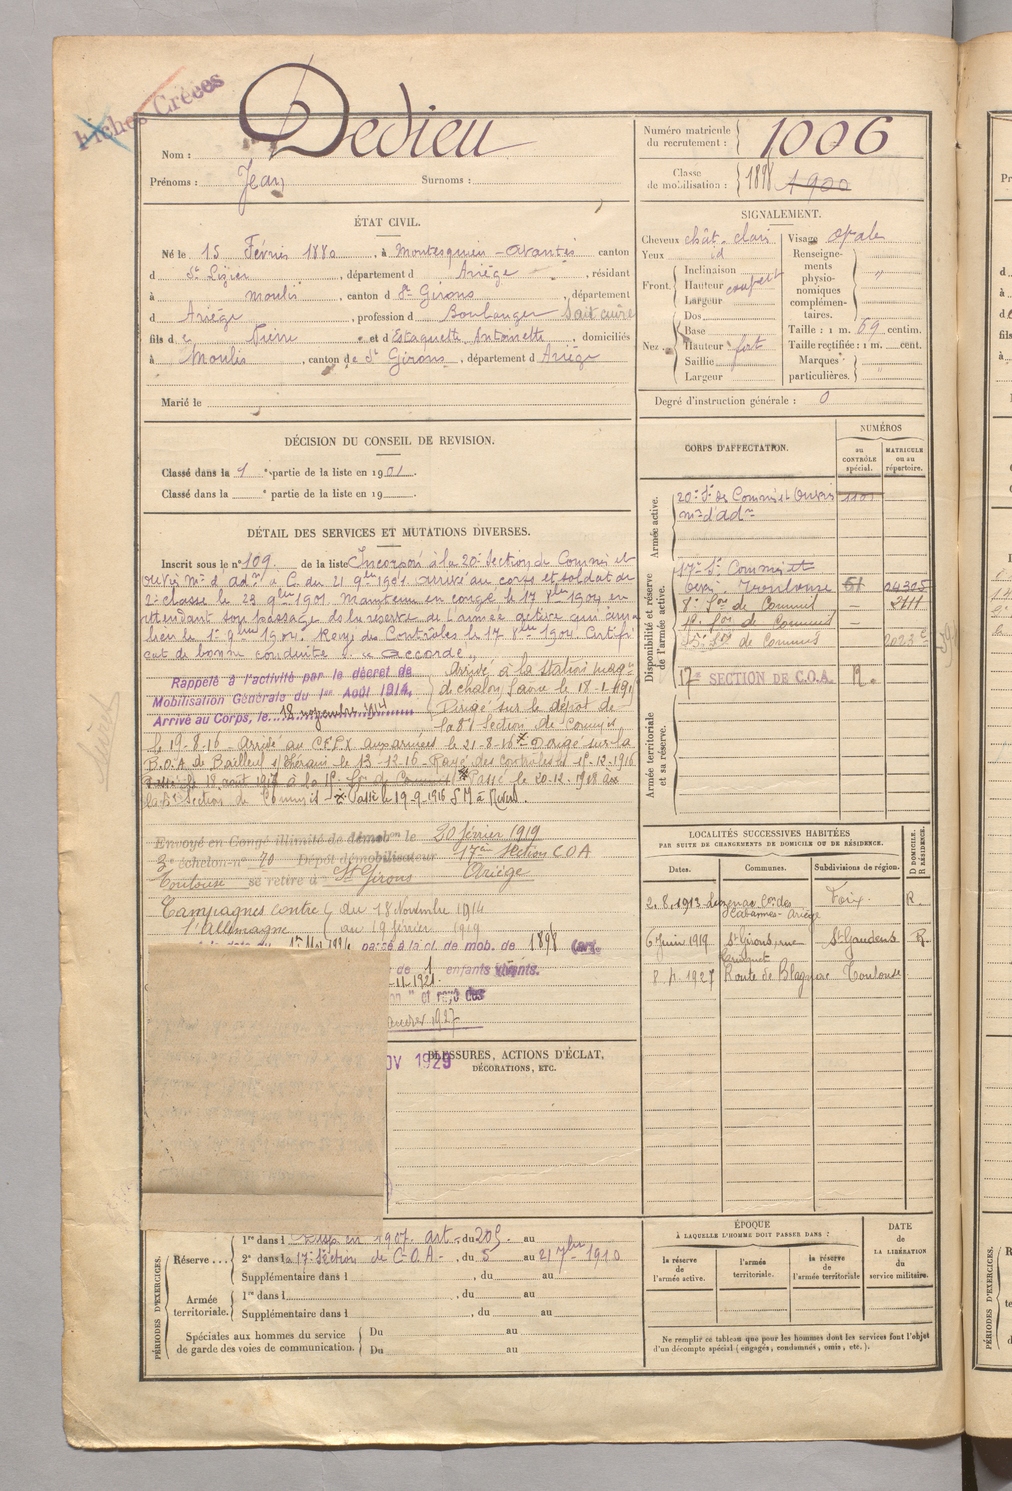 Fiches Créées
Nom : Dedieu
Prénoms : Jean Surnoms :
Numéro matricule du recrutement : 1006
Classe de mobilisation : 1898 1900
ÉTAT CIVIL.
Né le 15 Février 1880, à Montesquieu-Avantès canton
d St Lizier, département d Ariège, résidant
à Moulis, canton d St Girons, département
d Ariège, profession d Boulanger Sait cuire
fils de Pierre et d Estaquette Antoinette, domiciliés
à Moulis, canton de St Girons, département d Ariège
Marié le
SIGNALEMENT.
Cheveux chât. clair
Yeux id
Front. Inclinaison
Hauteur
Largeur
Nez. Dos
Base
Hauteur fort
Saillie
Largeur
Visage ovale
Renseignements physionomiques complémentaires. "
Taille : 1 m. 69 centim.
Taille rectifiée : 1 m. cent.
Marques particulières. "
Degré d'instruction générale : 0
DÉCISION DU CONSEIL DE REVISION.
Classé dans la 1 e partie de la liste en 1901.
Classé dans la e partie de la liste en 19
DÉTAIL DES SERVICES ET MUTATIONS DIVERSES.
Inscrit sous le n° 109. de la liste Incorporé à la 20e Section de Commis et
ouvrs m. d'admon à C. du 21 9bre 1901. Arrivé au corps et soldat de
2e classe le 23 9bre 1901. Maintenu en congé le 17 8bre 1904 en
attendant son passage ds la réserve de l'armée active qui aura
lieu le 1er 9bre 1904. Rayé des Contrôles le 17 8bre 1904. Certifi
cat de bonne conduite "Accordé"
Rappelé à l'activité par le décret de
Mobilisation Générale du 1er Août 1914,
Arrivé au Corps, le 18 novembre 1914
Arrivé à la Station mag.
de chalon s/ Saone le 18-1-1916
Dirigé sur le dépôt de
la 8e Section de Commis
le 19-8-16 - Arrivé au C.F.L.X aux armées le 21-8-16 Dirigé sur la
B.O.A de Bailleul s/ Thérain le 13-12-16 - Rayé des contrôles le 15-12-1916
Passé le 18 août 1917 à la 1e Son de Commis Passé le 20-12-1918 à
la Section de Commis - Passé le 19-9-1916 S M à Nevers.
Envoyé en Congé illimité de démobon le 20 février 1919
3e échelon n° 70 Dépôt démobilisateur 17e Section C.O.A
Toulouse se retire à St Girons Ariège
Campagnes contre l'Allemagne du 18 Novembre 1914
au 19 février 1919
passé à la cl. de mob. de 1898
de 1 enfants vivants.
et rayé des
1927
NOV 1929
BLESSURES, ACTIONS D'ÉCLAT,
DÉCORATIONS, ETC.
CORPS D'AFFECTATION.
NUMÉROS
au CONTRÔLE spécial.
MATRICULE ou au répertoire.
Armée active.
20e Son de Commis et Ouvrs 1101
m. d'adon
Disponibilité et réserve de l'armée active.
17e Son Commis et
Ouvr. Toulouse 51 04305
8e Son de Commis — 2111
1e Son de Commis —
15e Son de Commis
17e SECTION DE C.O.A. R.
Armée territoriale et sa réserve.
LOCALITÉS SUCCESSIVES HABITÉES
PAR SUITE DE CHANGEMENTS DE DOMICILE OU DE RÉSIDENCE.
Dates. Communes. Subdivisions de région. D DOMICILE. R RÉSIDENCE.
2.8.1913 Luzenac Con des Cabannes - Ariège Foix. R.
6 Juin 1919 St Girons, rue St Gaudens R.
8.4.1927 Route de Blagnac Toulouse
PÉRIODES D'EXERCICES.
Réserve... 1re dans l en 1907 art. du 205. au
2e dans la 17e Section de C.O.A. - , du 5 au 21 7bre 1910
Supplémentaire dans l , du au
Armée territoriale. 1re dans l , du au
Supplémentaire dans l , du au
Spéciales aux hommes du service de garde des voies de communication. Du au
Du au
ÉPOQUE
À LAQUELLE L'HOMME DOIT PASSER DANS :
la réserve de l'armée active.
l'armée territoriale.
la réserve de l'armée territoriale
DATE de LA LIBÉRATION du service militaire.
Ne remplir ce tableau que pour les hommes dont les services font l'objet
d'un décompte spécial (engagés, condamnés, omis, etc.).